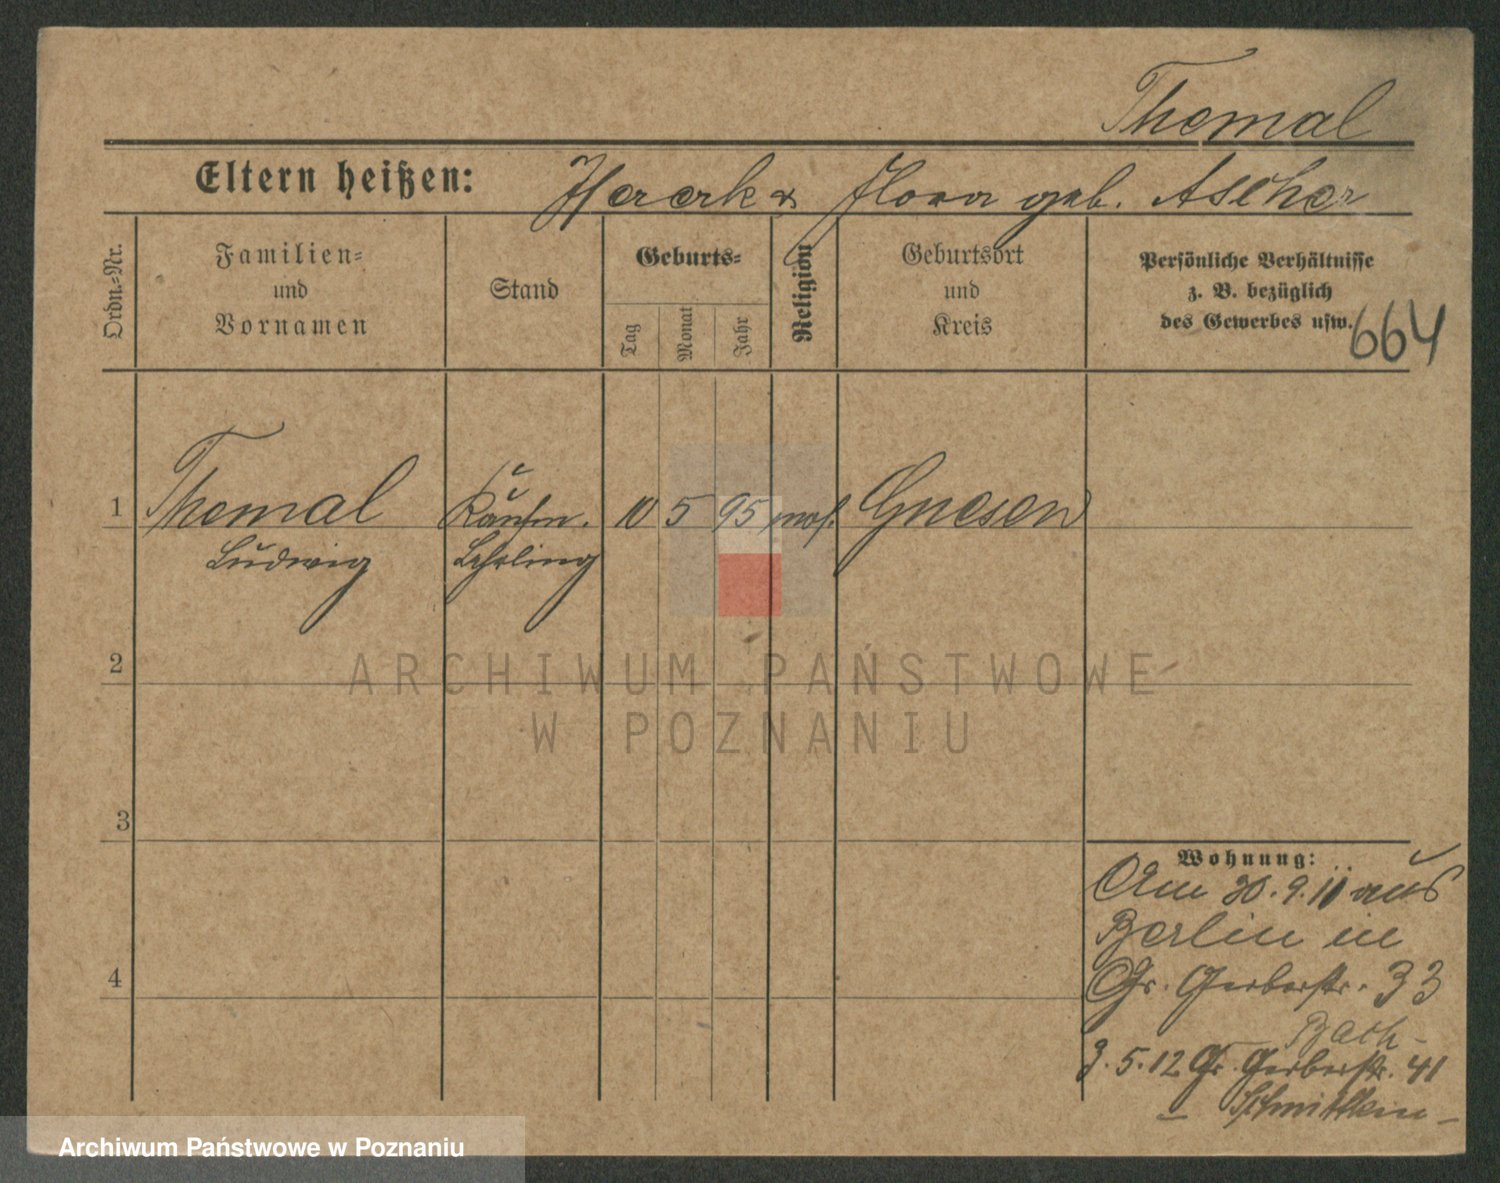 Themal
Eltern heißen: & Flora geb. Ascher
Ordn.-Nr.
Familien-
und
Vornamen
Stand
Geburts-
Tag
Monat
Jahr
Religion
Geburtsort
und
Kreis
Persönliche Verhältnisse
z. B. bezüglich
des Gewerbes usw.
664
1 Themal Kaufm. 10 5 95 mos. Gnesen
Ludwig Lehrling
2
ARCHIWUM PAŃSTWOWE
W POZNANIU
3
Wohnung:
Am 30.9.11 aus
Berlin in
4
Gr. Gerberstr. 33
Bach-
3.5.12 Gr. Gerberstr. 41
Archiwum Państwowe w Poznaniu